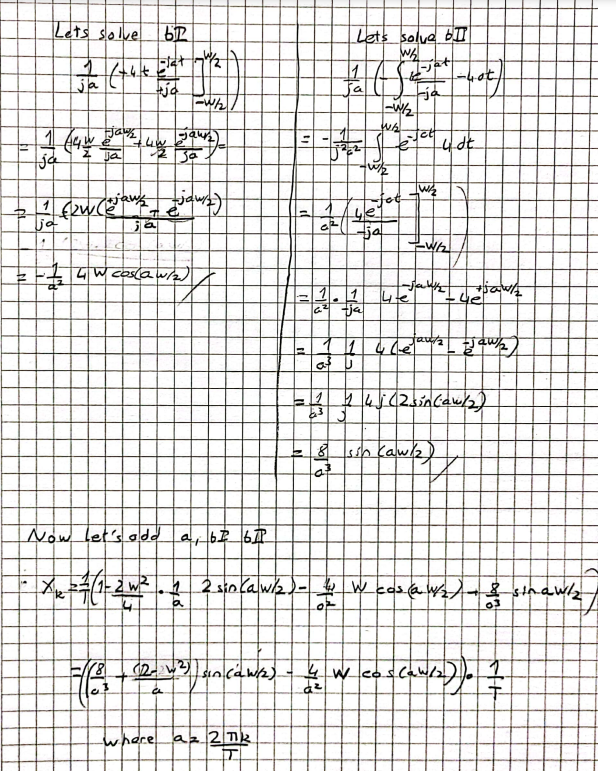 Lets solve bI
1/ja (+4t e^{-jat}/+ja ]_{-W/2}^{W/2})
= 1/ja (+4W/2 e^{-jaW/2}/ja + 4W/2 e^{-jaW/2}/ja) =
= 1/ja (2W(e^{+jaW/2} + e^{-jaW/2})/ja)
= -1/a² 4 W cos(aW/2)
Lets solve bII
1/ja (-∫_{-W/2}^{W/2} e^{-jat}/-ja -4dt)
= -1/j²a² ∫_{-W/2}^{W/2} e^{-jat} 4 dt
= 1/a² (4e^{-jat}/-ja ]_{-W/2}^{W/2})
= 1/a² · 1/-ja 4e^{-jaW/2} - 4e^{+jaW/2}
= 1/a³ 1/j 4(e^{jaW/2} - e^{-jaW/2})
= 1/a³ 1/j 4j(2sin(aW/2)
= 8/a³ sin(aW/2)
Now let's add a, bI bII
X_k = 1/T (1-2W²/4 · 1/a 2 sin(aW/2) - 4/a² W cos(aW/2) + 8/a³ sin aW/2)
= ((8/a³ + W²)/a) sin(aW/2) - 4/a² W cos(aW/2)) · 1/T
where a = 2πk/T